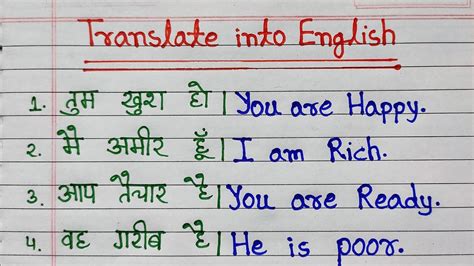 Translate into English
1. तुम खुश हो | You are Happy.
2. मै अमीर हूँ | I am Rich.
3. आप तैयार है | You are Ready.
4. वह गरीब है | He is poor.